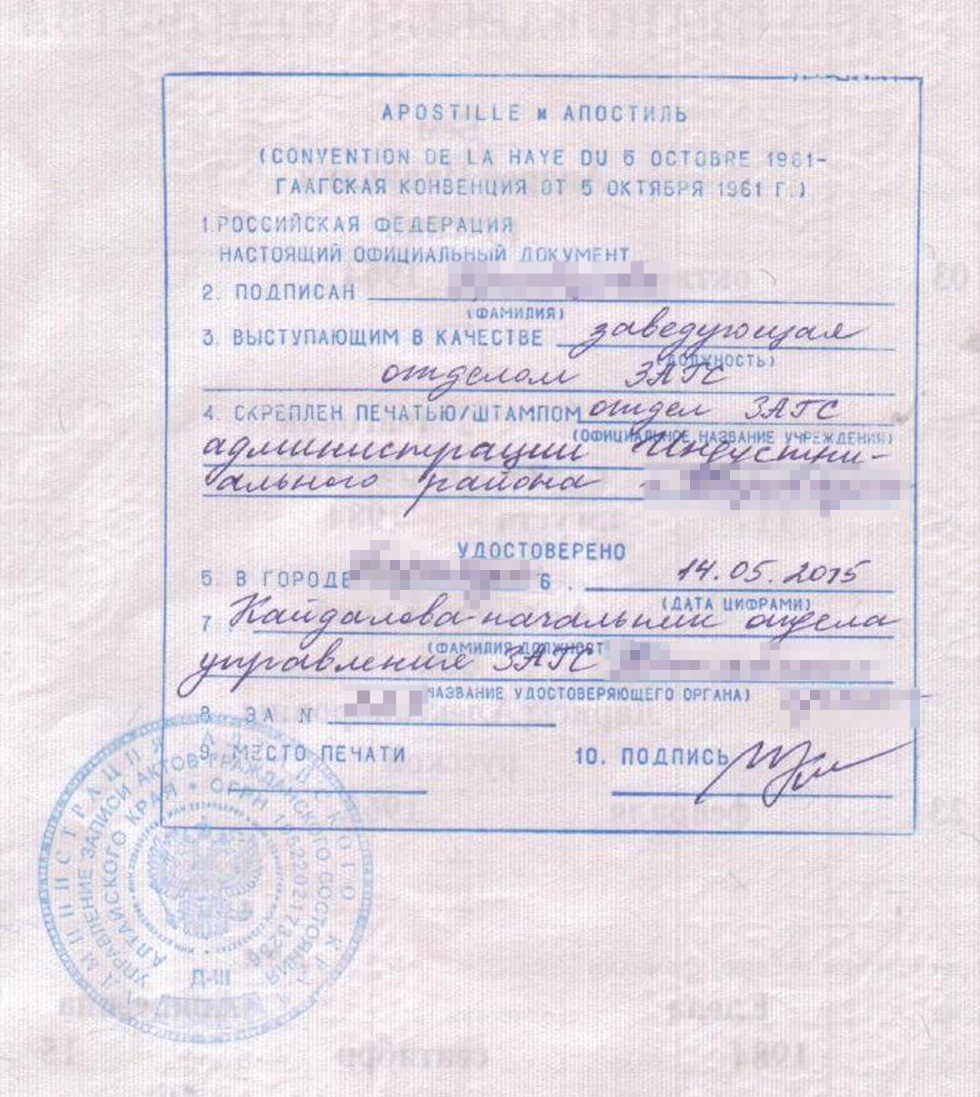 APOSTILLE и АПОСТИЛЬ
(CONVENTION DE LA HAYE DU 5 OCTOBRE 1961-
ГААГСКАЯ КОНВЕНЦИЯ ОТ 5 ОКТЯБРЯ 1961 Г.)
1.РОССИЙСКАЯ ФЕДЕРАЦИЯ
НАСТОЯЩИЙ ОФИЦИАЛЬНЫЙ ДОКУМЕНТ
2. ПОДПИСАН
(ФАМИЛИЯ)
3. ВЫСТУПАЮЩИМ В КАЧЕСТВЕ заведующая
(ДОЛЖНОСТЬ)
отделом ЗАГС
4. СКРЕПЛЕН ПЕЧАТЬЮ/ШТАМПОМ отдел ЗАГС
(ОФИЦИАЛЬНОЕ НАЗВАНИЕ УЧРЕЖДЕНИЯ)
администрации Индустри-
ального района
УДОСТОВЕРЕНО
5. В ГОРОДЕ 6. 14.05.2015
(ДАТА ЦИФРАМИ)
7. Кайдалова-начальник отдела
(ФАМИЛИЯ ДОЛЖНОСТ
управления ЗАГС
НАЗВАНИЕ УДОСТОВЕРЯЮЩЕГО ОРГАНА)
8. ЗА N
9. МЕСТО ПЕЧАТИ 10. ПОДПИСЬ
УПРАВЛЕНИЕ ЗАПИСИ АКТОВ ГРАЖДАНСКОГО СОСТОЯНИЯ
АЛТАЙСКОГО КРАЯ • ОГРН
Д-III